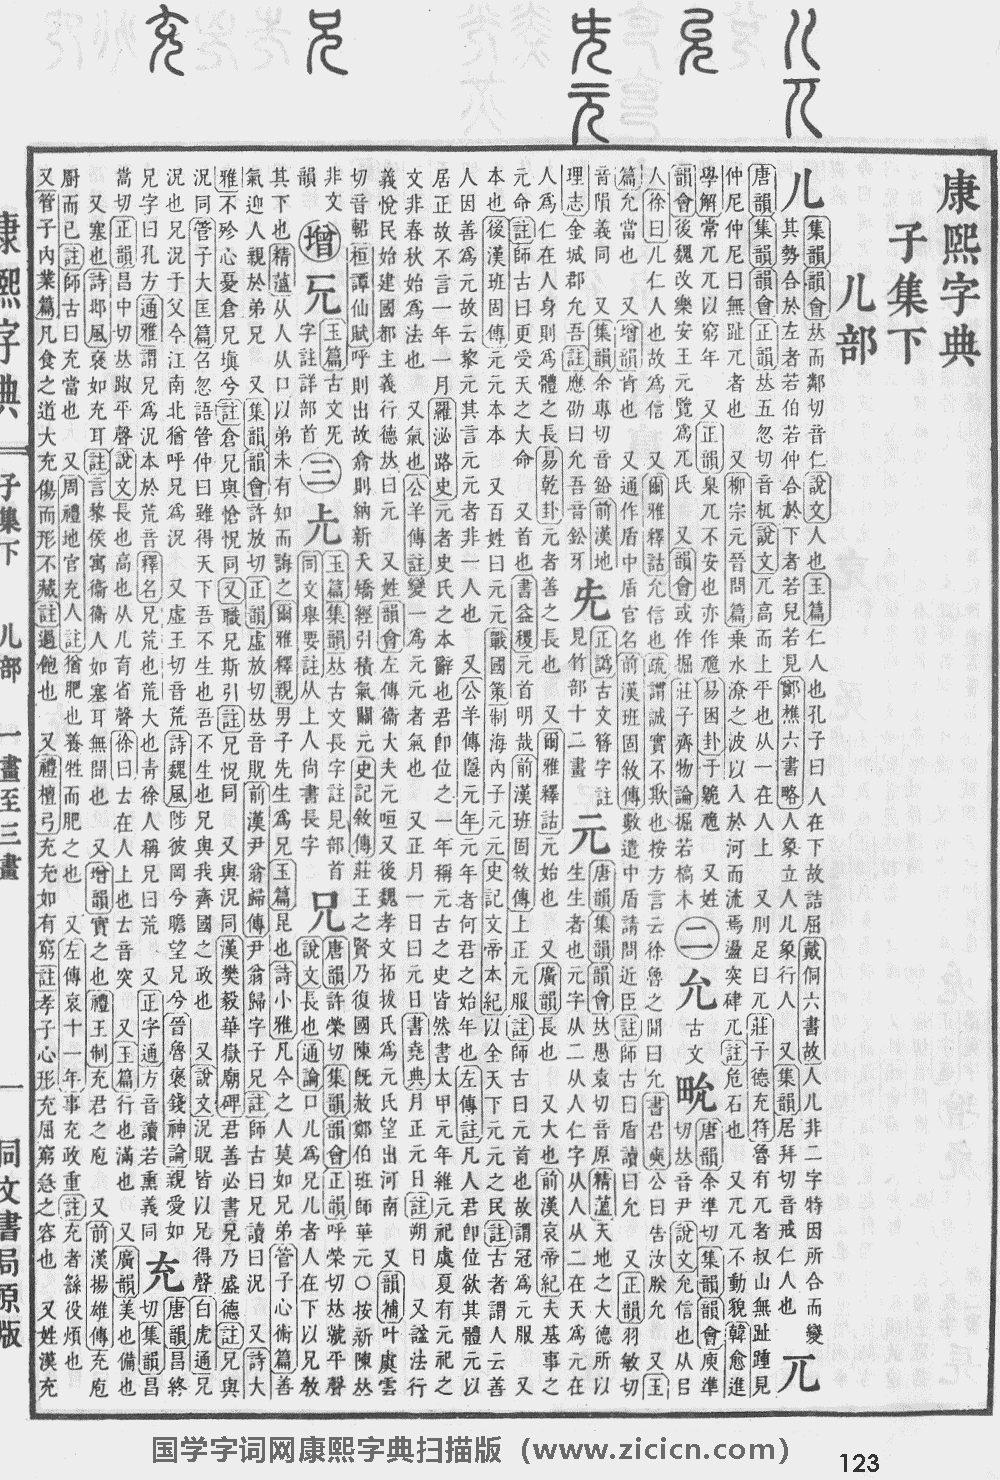 康熙字典
子集下
儿部
儿 集韻韻會𠀤而鄰切音仁說文人也玉篇仁人也孔子曰人在下故詰屈戴侗六書故人儿非二字特因所合而變
其勢合於左者若伯若仲合於下者若兒若見鄭樵六書略人象立人儿象行人 又集韻居拜切音戒仁人也 兀
唐韻集韻韻會正韻𠀤五忽切音杌說文兀高而上平也从一在人上 又刖足曰兀莊子德充符魯有兀者叔山無趾踵見
仲尼仲尼曰無趾兀者也 又柳宗元晉問篇乘水潦之波以入於河而流焉盪突硉兀註危石也 又兀兀不動貌韓愈進
學解常兀兀以窮年 又正韻臬兀不安也亦作卼易困卦于臲卼 又姓
韻會後魏改樂安王元覽爲兀氏 又韻會或作掘莊子齊物論掘若槁木 二 允 古文 㽙 唐韻余準切集韻韻會庾準
切𠀤音尹說文允信也从㠯
人徐曰儿仁人也故爲信 又爾雅釋詁允信也疏謂誠實不欺也按方言云徐魯之閒曰允書君奭公曰告汝朕允 又玉
篇允當也 又增韻肯也 又通作盾中盾官名前漢班固敘傳數遣中盾請問近臣註師古曰盾讀曰允 又正韻羽敏切
音隕義同 又集韻余專切音鉛前漢地
理志金城郡允吾註應劭曰允吾音鈆牙 兂 正譌古文簪字註
見竹部十二畫 元 唐韻集韻韻會𠀤愚袁切音原精薀天地之大德所以
生生者也元字从二从人仁字从人从二在天爲元在
人爲仁在人身則爲體之長易乾卦元者善之長也 又爾雅釋詁元始也 又廣韻長也 又大也前漢哀帝紀夫基事之
元命註師古曰更受天之大命 又首也書益稷元首明哉前漢班固敘傳上正元服註師古曰元首也故謂冠爲元服 又
本也後漢班固傳元元本本 又百姓曰元元戰國策制海內子元元史記文帝本紀以全天下元元之民註古者謂人云善
人因善爲元故云黎元其言元元者非一人也 又公羊傳隱元年元年者何君之始年也左傳註凡人君卽位欲其體元以
居正故不言一年一月羅泌路史元者史氏之本辭也君卽位之一年稱元古之史皆然書太甲元年維元祀虞夏有元祀之
文非春秋始爲法也 又氣也公羊傳註變一爲元元者氣也 又正月一日曰元日書堯典月正元日註朔日 又諡法行
義悅民始建國都主義行德𠀤曰元 又姓韻會左傳衞大夫元咺又後魏孝文拓拔氏爲元氏望出河南 又韻補叶虞雲
切音輑桓譚仙賦呼則出故翕則納新夭矯經引積氣關元史記敘傳莊王之賢乃復國陳旣赦鄭伯班師華元○按新陳𠀤
非文
韻 增 玉篇古文
字註詳部首 三 玉篇集韻𠀤古文長字註見部首
同文舉要註从上人尙書長字 兄 唐韻許榮切集韻韻會正韻呼榮切𠀤䝞平聲
說文長也通論口儿爲兄儿者人在下以兄敎
其下也精薀从人从口以弟未有知而誨之爾雅釋親男子先生爲兄玉篇昆也詩小雅凡今之人莫如兄弟管子心術篇善
氣迎人親於弟兄 又集韻韻會許放切正韻虛放切𠀤音貺前漢尹翁歸傳尹翁歸字子兄註師古曰兄讀曰況 又詩大
雅不殄心憂倉兄塡兮註倉兄與愴怳同又職兄斯引註兄怳同 又與況同漢樊毅華嶽廟碑君善必書兄乃盛德註兄與
況同管子大匡篇召忽語管仲曰雖得天下吾不生也吾不生也兄與我齊國之政也 又說文況貺皆以兄得聲白虎通兄
況也兄況于父今江南北猶呼兄爲況 又虛王切音荒詩魏風陟彼岡兮瞻望兄兮晉魯褒錢神論親愛如
兄字曰孔方通雅謂兄爲況本於荒音釋名兄荒也荒大也靑徐人稱兄曰荒 又正字通方音讀若熏義同 充 唐韻昌終
切集韻昌
嵩切正韻昌中切𠀤䟣平聲說文長也高也从儿育省聲徐曰𠫓在人上也𠫓音突 又玉篇行也滿也 又廣韻美也備也
又塞也詩邶風褎如充耳註言黎侯寓衞衞人如塞耳無聞也 又增韻實之也禮王制充君之庖 又前漢揚雄傳充庖
廚而已註師古曰充當也 又周禮地官充人註猶肥也養牲而肥之也 又左傳哀十一年事充政重註充者繇役煩也
又管子內業篇凡食之道大充傷而形不藏註過飽也 又禮檀弓充充如有窮註孝子心形充屈窮急之容也 又姓漢充
康熙字典 子集下 儿部 一畫至三畫 一 同文書局原版
国学字词网康熙字典扫描版（www.zicicn.com）
123